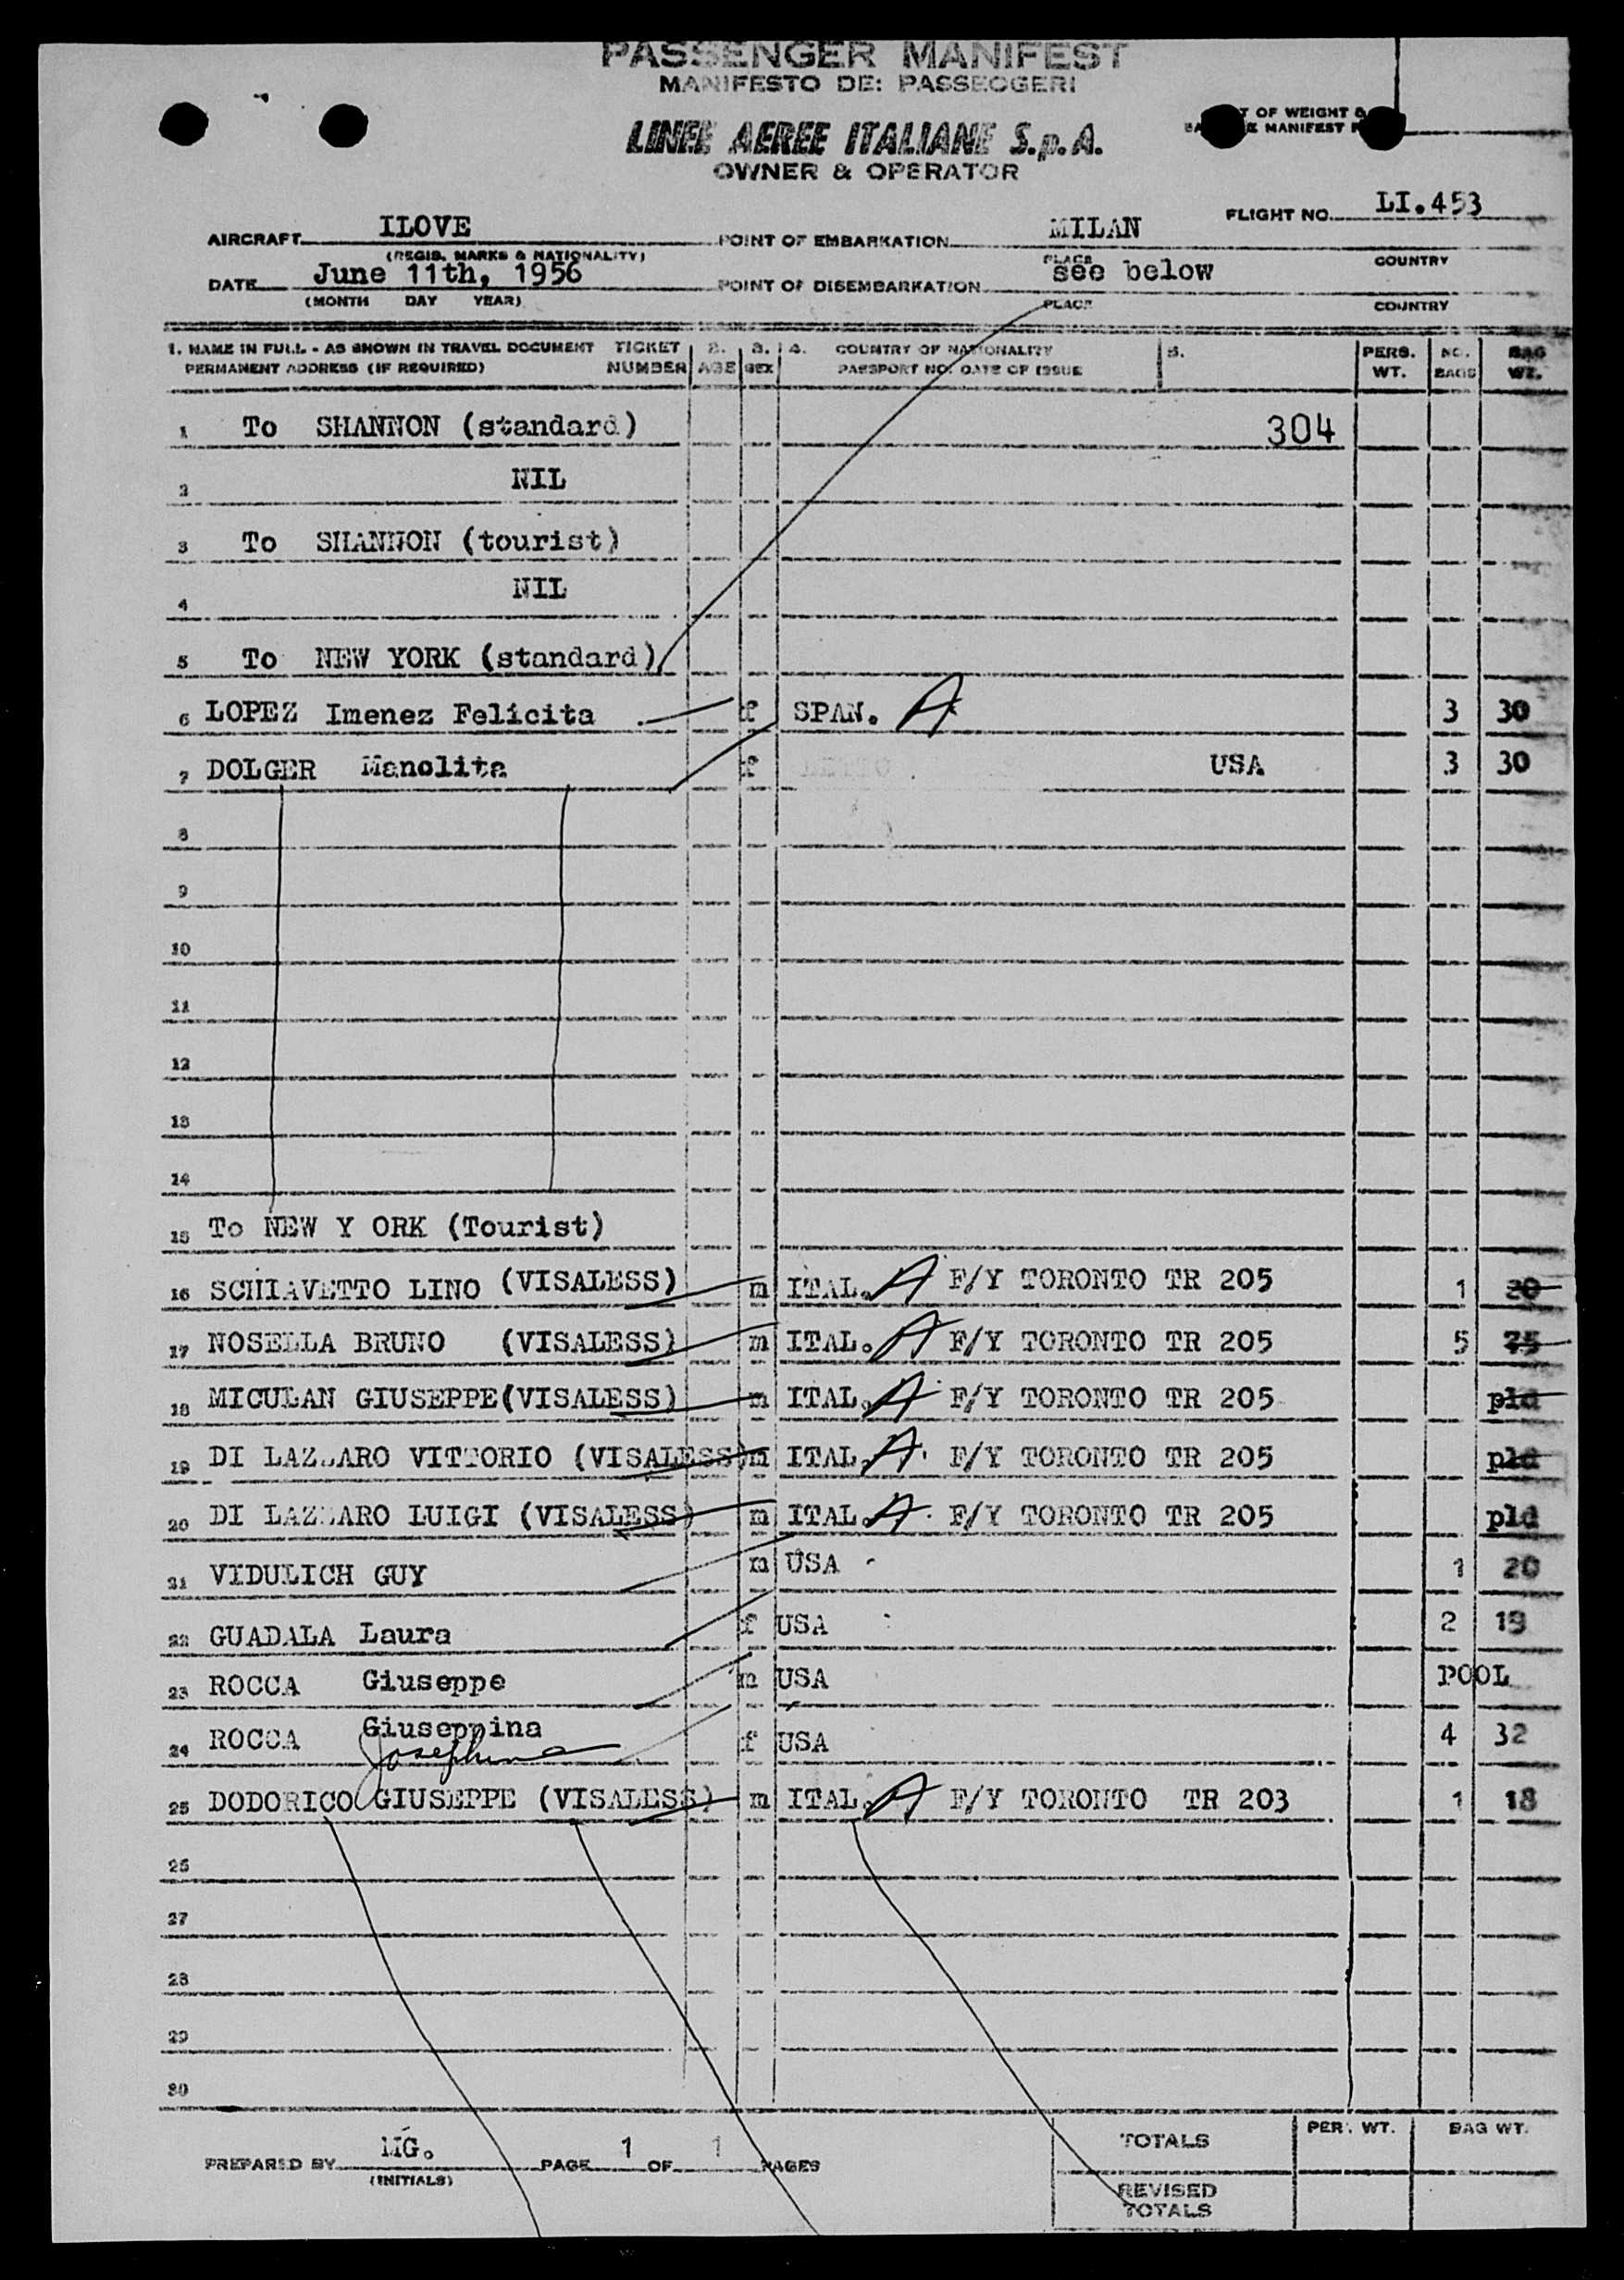 PASSENGER MANIFEST
MANIFESTO DEI PASSEGGERI
LINEE AEREE ITALIANE S.p.A.
OWNER & OPERATOR
T OF WEIGHT &
E MANIFEST
AIRCRAFT ILOVE POINT OF EMBARKATION MILAN FLIGHT NO. LI.453
(REGIS. MARKS & NATIONALITY) PLACE COUNTRY
DATE June 11th, 1956 POINT OF DISEMBARKATION see below
(MONTH DAY YEAR) PLACE COUNTRY
1. NAME IN FULL - AS SHOWN IN TRAVEL DOCUMENT TICKET 2. 3. 4. COUNTRY OF NATIONALITY 5. PERS. NO. BAG
PERMANENT ADDRESS (IF REQUIRED) NUMBER AGE SEX PASSPORT NO. DATE OF ISSUE WT. BAGS WT.
1 To SHANNON (standard) 304
2 NIL
3 To SHANNON (tourist)
4 NIL
5 To NEW YORK (standard)
6 LOPEZ Imenez Felicita f SPAN. A 3 30
7 DOLGER Manolita f USA 3 30
8
9
10
11
12
13
14
15 To NEW Y ORK (Tourist)
16 SCHIAVETTO LINO (VISALESS) m ITAL. A F/Y TORONTO TR 205 1 20
17 NOSELLA BRUNO (VISALESS) m ITAL. A F/Y TORONTO TR 205 5 75
18 MICULAN GIUSEPPE(VISALESS) m ITAL. A F/Y TORONTO TR 205 pld
19 DI LAZZARO VITTORIO (VISALESS)m ITAL. A F/Y TORONTO TR 205 pld
20 DI LAZZARO LUIGI (VISALESS) m ITAL. A F/Y TORONTO TR 205 pld
21 VIDULICH GUY m USA 1 20
22 GUADALA Laura f USA 2 19
23 ROCCA Giuseppe m USA POOL
24 ROCCA Giuseppina f USA 4 32
Josephine
25 DODORICO GIUSEPPE (VISALESS) m ITAL. A F/Y TORONTO TR 203 1 18
26
27
28
29
30
PREPARED BY MG. PAGE 1 OF 1 PAGES
(INITIALS)
TOTALS PER. WT. BAG WT.
REVISED
TOTALS